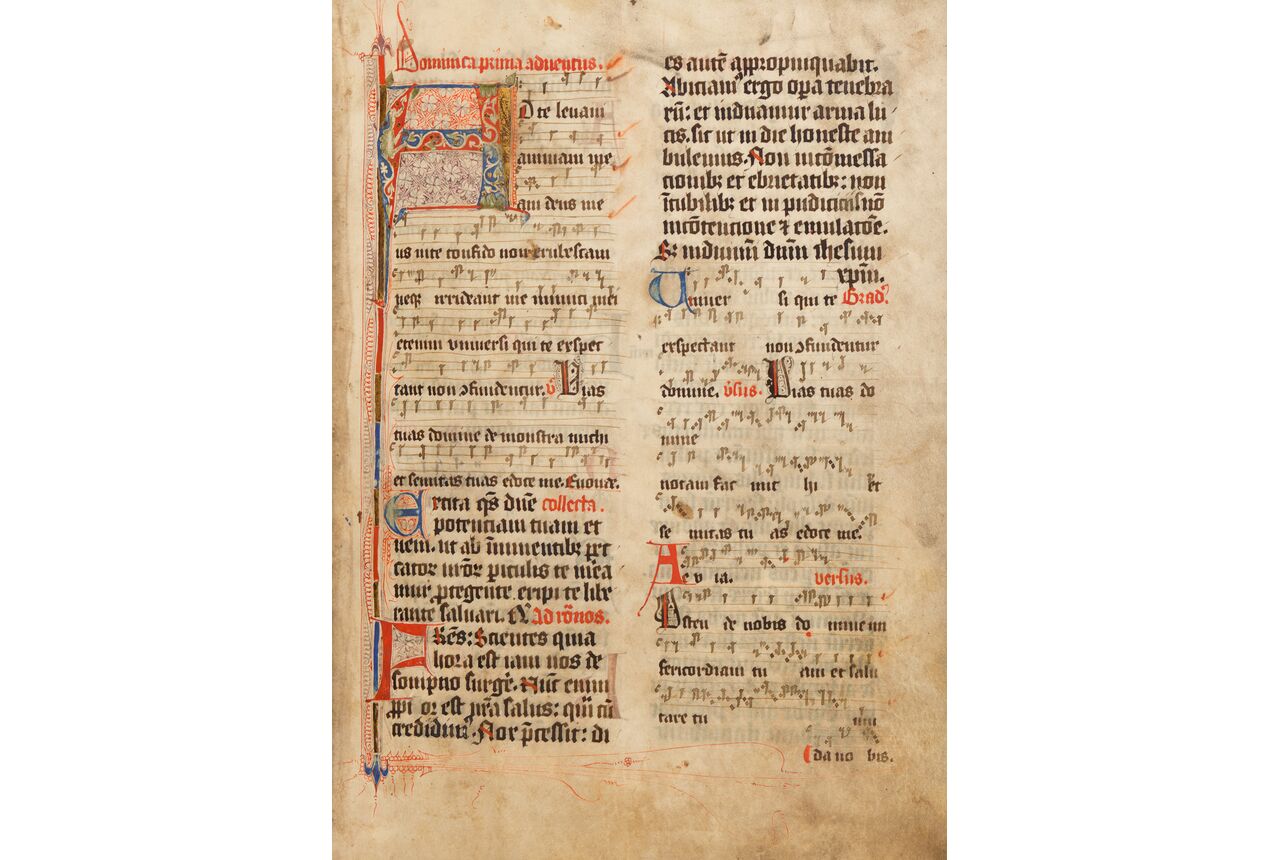 Dominica prima adventus.
AD te levavi
animam me
am deus me
us in te confido non erubescam
neqꝫ irrideant me inimici mei
etenim universi qui te exspec
tant non ↄfundentur. v̄ Vias
tuas domine demonstra michi
et semitas tuas edoce me. Euouae.
Excita q̄s dn̄e collecta.
potenciam tuam et
veni. ut ab īminentibꝫ pct̄
cator n̄ror piculis te mea
mur ꝓtegente. eripi te libe
rante salvari. Ad rōnos.
FRēs: Scientes quia
hora est iam nos de
sompno surgē. Nūc enim
ꝓpior est nr̄a salus: qm̄ cū
credidim᷒. Nox p̄cessit: di
es autē appropinquabit.
Abiciam᷒ ergo oꝑa tenebra
rū: et induamur arma lu
cis. sit ut in die honeste am
bulemus. Non in cōmessa
cionibꝫ et ebrietatibꝫ: non
ī cubilibꝫ et in pudiciciis nō
in cōtencione ⁊ emulacōe.
Sꝫ induimī dn̄m ihesum
xpm̄.
Univer si qui te Grad᷒.
exspectant non ↄfundentur
domine. v̄sus. Vias tuas do
mine
notam fac mic hi et
se mitas tu as edoce me.
Ae v ia. versus.
Osten de nobis do mine m
sericordiam tu am et salu
tare tu um
da no bis.